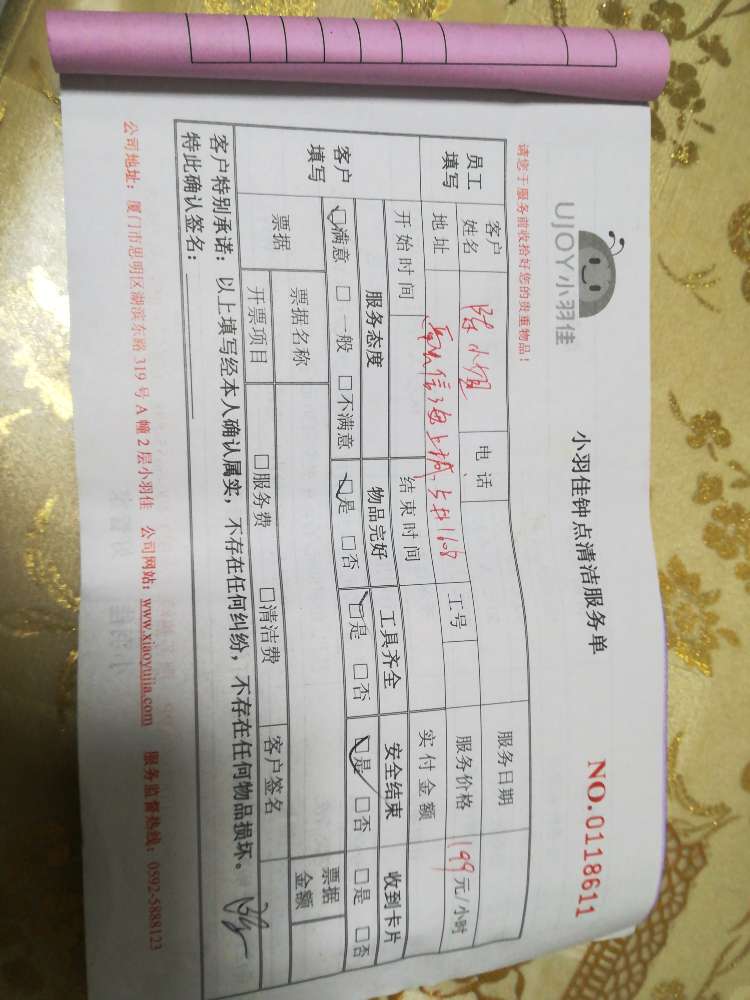 UJOY小羽佳
小羽佳钟点清洁服务单
NO.0118611
请您于服务前收拾好您的贵重物品！
员工填写
客户姓名 陈小姐 电话 工号 服务日期
地址 信海上城 1608 服务价格 199元/小时
开始时间 结束时间 实付金额
客户填写
服务态度 物品完好 工具齐全 安全结束 收到卡片
☑满意 □一般 □不满意 ☑是 □否 ☑是 □否 ☑是 □否 □是 □否
票据 票据名称 票据金额
开票项目 □服务费 □清洁费 客户签名
客户特别承诺：以上填写经本人确认属实，不存在任何纠纷，不存在任何物品损坏。
特此确认签名：
公司地址：厦门市思明区湖滨东路 319 号 A 幢 2 层小羽佳 公司网站：www.xiaoyujia.com 服务监督热线：0592-5888123